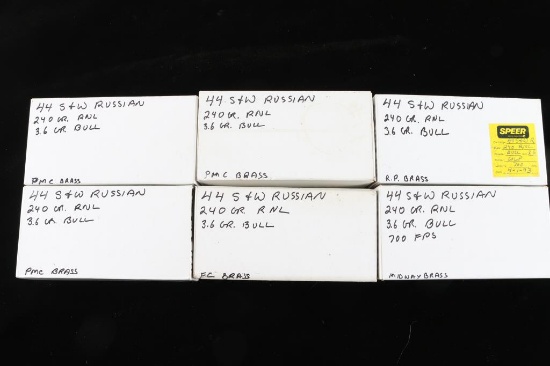 44 S&W RUSSIAN
240 GR. RNL
3.6 GR. BULL
PMC BRASS
44 S&W RUSSIAN
240 GR. RNL
3.6 GR. BULL
PMC BRASS
44 S&W RUSSIAN
240 GR. RNL
3.6 GR. BULL
R.P. BRASS
SPEER
44 S&W RUSSIAN
240 GR. RNL
3.6 GR BULL
PMC BRASS
44 S&W RUSSIAN
240 GR. RNL
3.6 GR. BULL
F.C BRASS
44 S&W RUSSIAN
240 GR. RNL
3.6 GR. BULL
700 FPS
MIDWAY BRASS